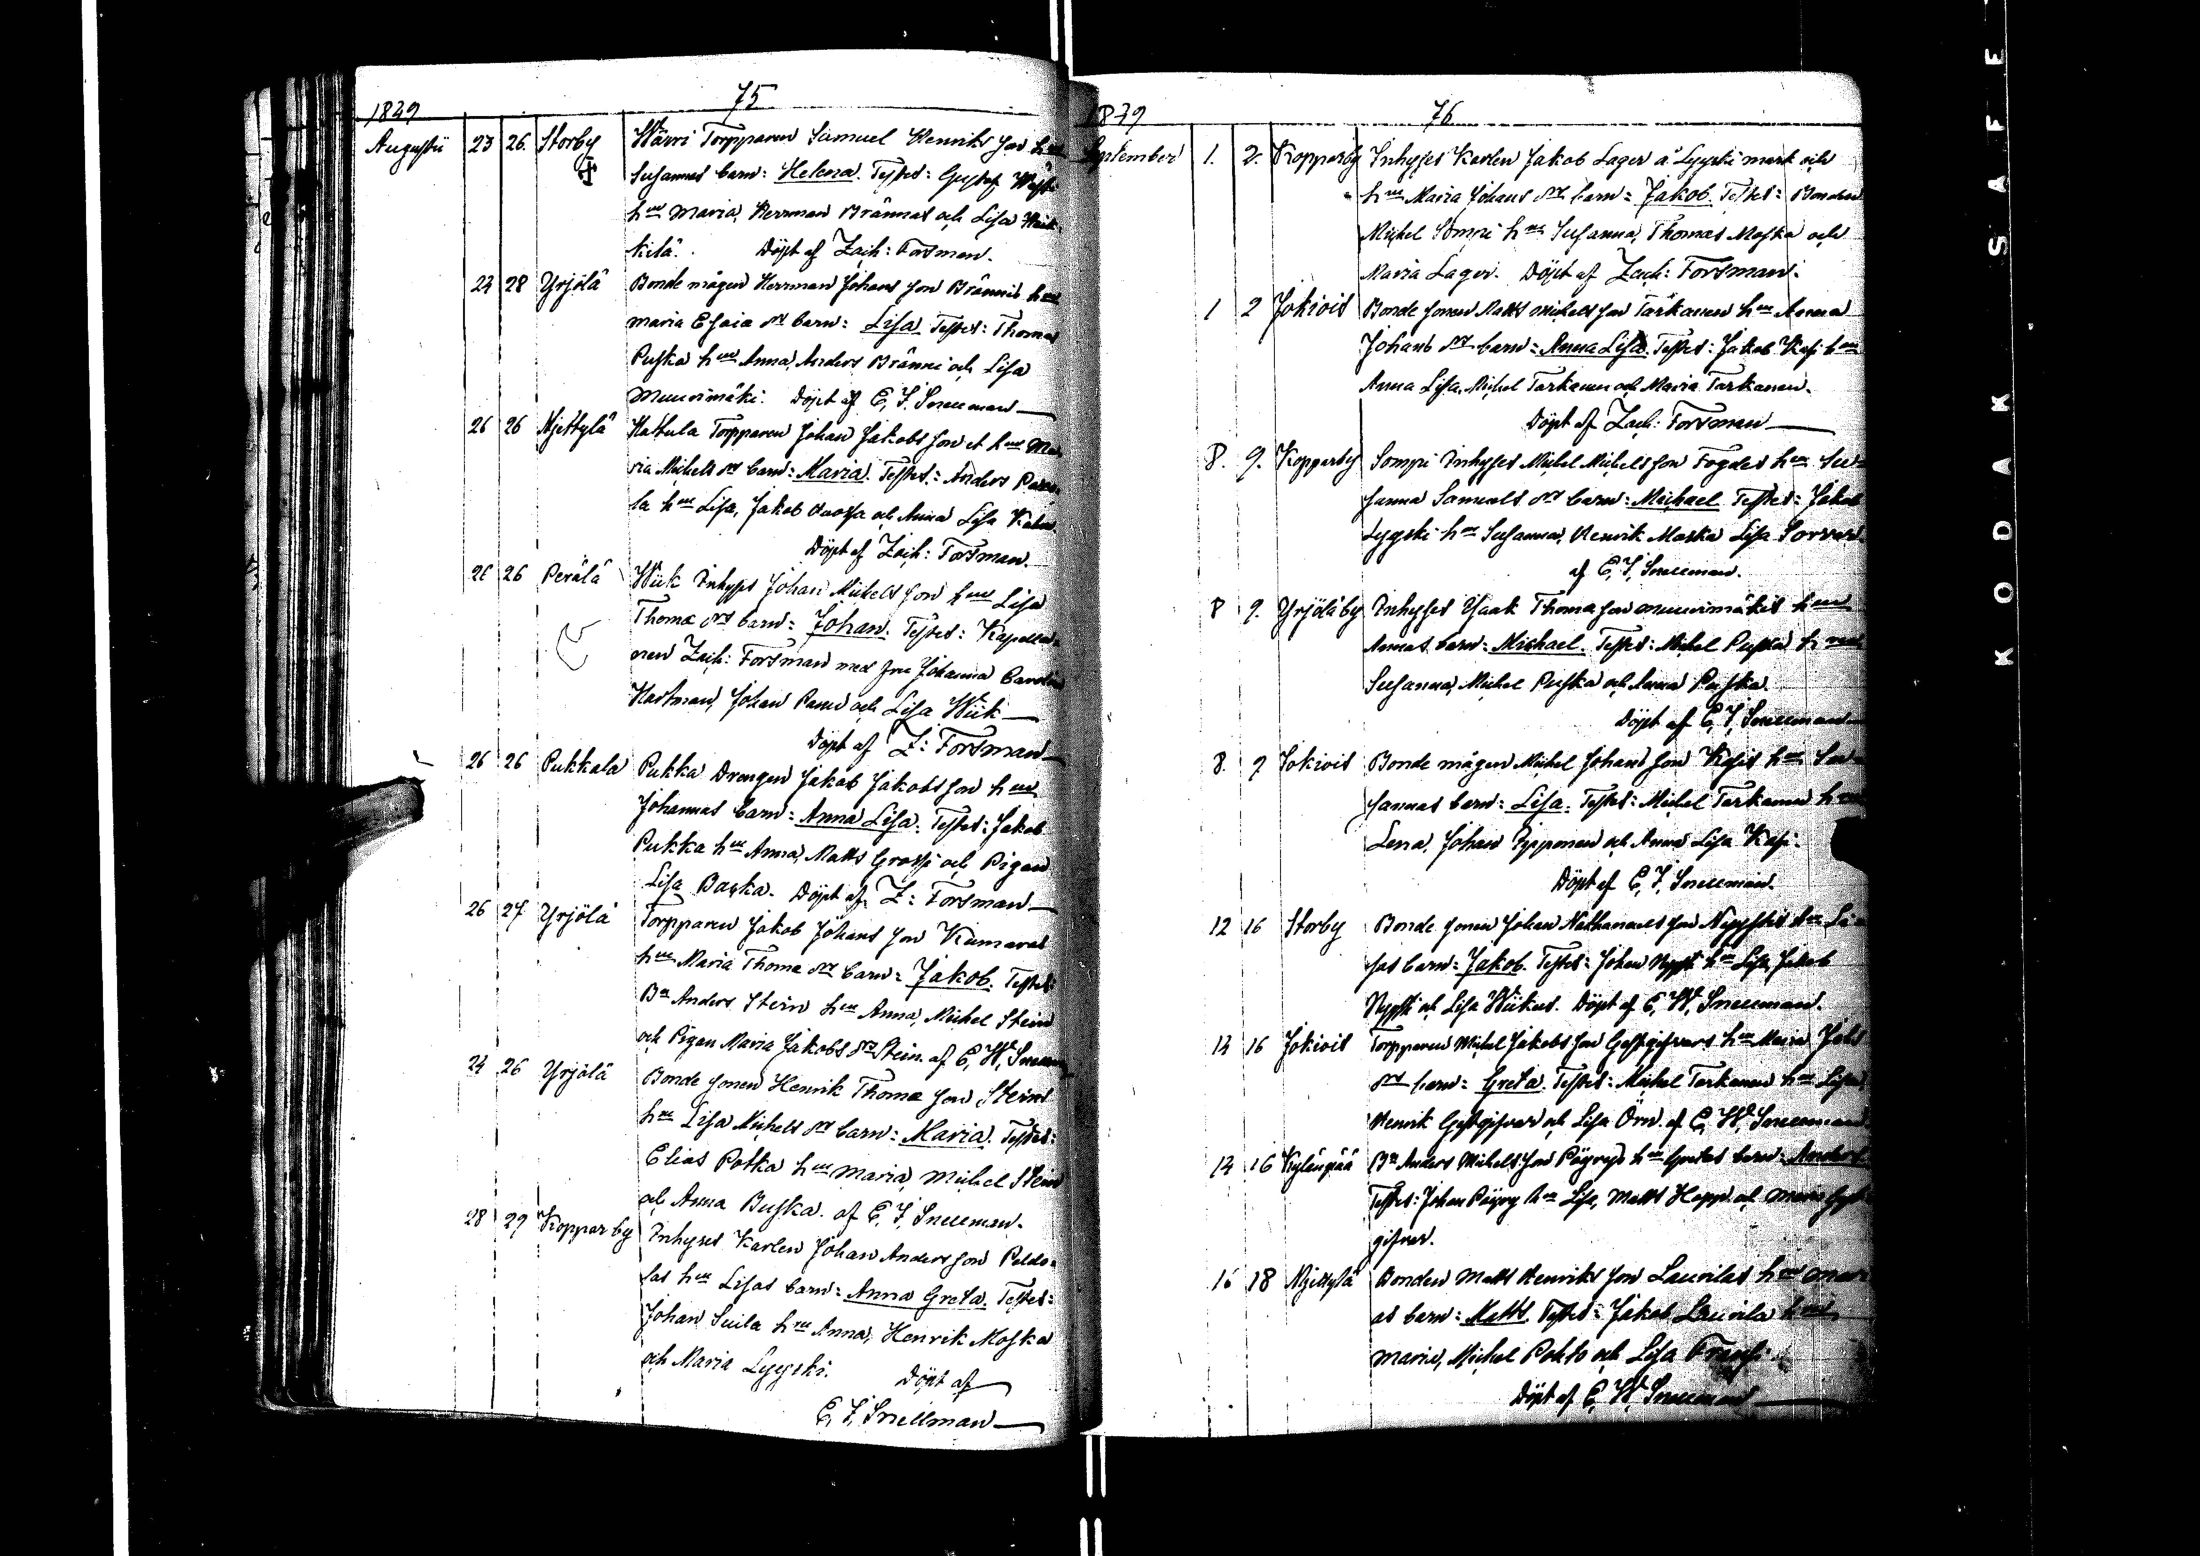 75
1839
Augusti 23 26. Storby Wärri Torpparen Samuel Henriks son hu
Susannas barn: Helena. Testes: Gustaf
hru Maria, Herrman Brännas och Lisa
kilä. Döpt af Zach: Forsman.
24 28 Yrjölä Bonde mågen Herrman Johans son Brännis hru
Maria Esaia dr barn: Lisa. Testes: Thomas
Puska hru Anna, Anders Bränni och Lisa
Muurimäki. Döpt af E, I, Snellman
26 26 Mjettylä Hattula Torpparen Johan Jakobs son et hru Ma
ria Michels dr barn: Maria. Testes: Anders
la hru Lisa, Jakob och Anna Lisa
Döpt af Zach: Forsman.
26 26 Perälä Wiik Inhyses Johan Michels son hru Lisa
Thomæ dr barn: Johan. Testes: Kapella-
nen Zach: Forsman med fru Johanna Carolin
Hartman, Johan och Lisa Wiik
Döpt af Z: Forsman
26 26 Pukkala Pukka Drengen Jakob Jakobs son hru
Johannas barn: Anna Lisa. Testes: Jakob
Pukka hru Anna, Matts och Pigan
Lisa Baska. Döpt af Z: Forsman
26 27 Yrjölä Torpparen Jakob Johans son
hru Maria Thomæ dr barn: Jakob. Testes:
Bn Anders Stein hru Anna, Michel Stein
och Pigan Maria Jakobs dr Stein. af E, W, Snellman
24 26 Yrjölä Bonde sonen Henrik Thomæ son Steins
hru Lisa Michels dr barn: Maria. Testes:
Elias Potka hru Maria, Michel Stein
och Anna Buska. af E, I, Snellman.
28 29 Kopparby Inhyses Karlen Johan Anders son Peldo-
las hru Lisas barn: Anna Greta. Testes:
Johan Suila hru Anna, Henrik Moska
och Maria Lyyski. Döpt af
E, I, Snellman
76
1839
September 1. 2. Kopparby Inhyses Karlen Jakob Lager å Lyyski mark och
hru Maria Johans dr barn: Jakob. Testes: Bonden
Michel Sompi hru Susanna, Thomas Moska och
Maria Lager. Döpt af Zach: Forsman.
1 2 Jokivis Bonde sonen Matts Michels son Tarkanen hru Anna
Johans dr barn: Anna Lisa. Testes: Jakob Kasi hru
Anna Lisa, Michel Tarkanen och Maria Tarkanen.
Döpt af Zach: Forsman
8. 9. Kopparby Sompi Inhyses Michel Michels son Fogdes hru Su-
sanna Samuels dr barn: Michael. Testes: Jakob
Lyyski hru Susanna, Henrik Moska Lisa
af E, I, Snellman.
8 9. Yrjöläby Inhyses Isaak Thomæ son Muurimäkis hru
Annas barn: Michael. Testes: Michel Puska hru
Susanna, Michel Puska och Anna Puska.
Döpt af E, I, Snellman
8. 9 Jokivis Bonde mågen Michel Johans son Kasis hru Su-
sannas barn: Lisa. Testes: Michel Tarkanen hru
Lena, Johan och Anna Lisa Kasi.
Döpt af E, I, Snellman.
12 16 Storby Bonde sonen Johan Nathanaels son hru Li-
sas barn: Jakob. Testes: Johan hru Lisa, Jakob
och Lisa. Döpt af E, W, Snellman.
14 16 Jokivis Torpparen Michel Jakobs son Gästgifvars hru Maria
dr barn: Greta. Testes: Michel Tarkanen hru Lisa
Henrik Gästgifvar och Lisa Örn. af E, W, Snellman.
14 16 Kylänpää Bn Anders Michels son Päyrys hru Gretas barn: Anders
Testes: Johan Päyry hru Lisa, Matts och Maria Gäst
gifvar.
16 18 Mjettylä Bonden Matts Henriks son Laurilas hru Mari
as barn: Matts. Testes: Jakob Laurila hru
Maria, Michel Pohto och Lisa
Döpt af E, W, Snellman
KODAK SAFE